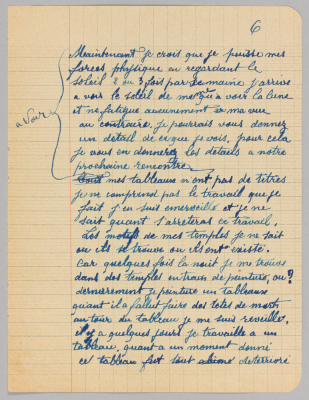 6
Maintenant je crois que je puisse mes
forces physique en regardant le
soleil 2 ou 3 fois par semaine j'arrive
a voir le soleil de meme qu'a voir la lune
et ne fatigue aucunement ma vue
au contraire, je pourrais vous donner
un detail de ce que je vois, pour cela
je vous en donnerez les details a notre
prochaine rencontre.
a voir
Tous mes tableaux n ont pas de titres
je ne comprend pas le travail que je
fait j'en suis emerveillé et je ne
sait quant j'arreterai ce travail.
Les motifs de mes temples je ne sait
ou ils se trouve ou ils ont existé.
Car quelques fois la nuit je me trouve
dans des temples en train de peinture, ou?
dernierement je peinture un tableaux
quant il a fallut faire des tetes de morts
autour du tableau je me suis reveiller.
il y a quelques jours je travaille a un
tableau, quant a un moment donné
ce tableau fut tout deterioré